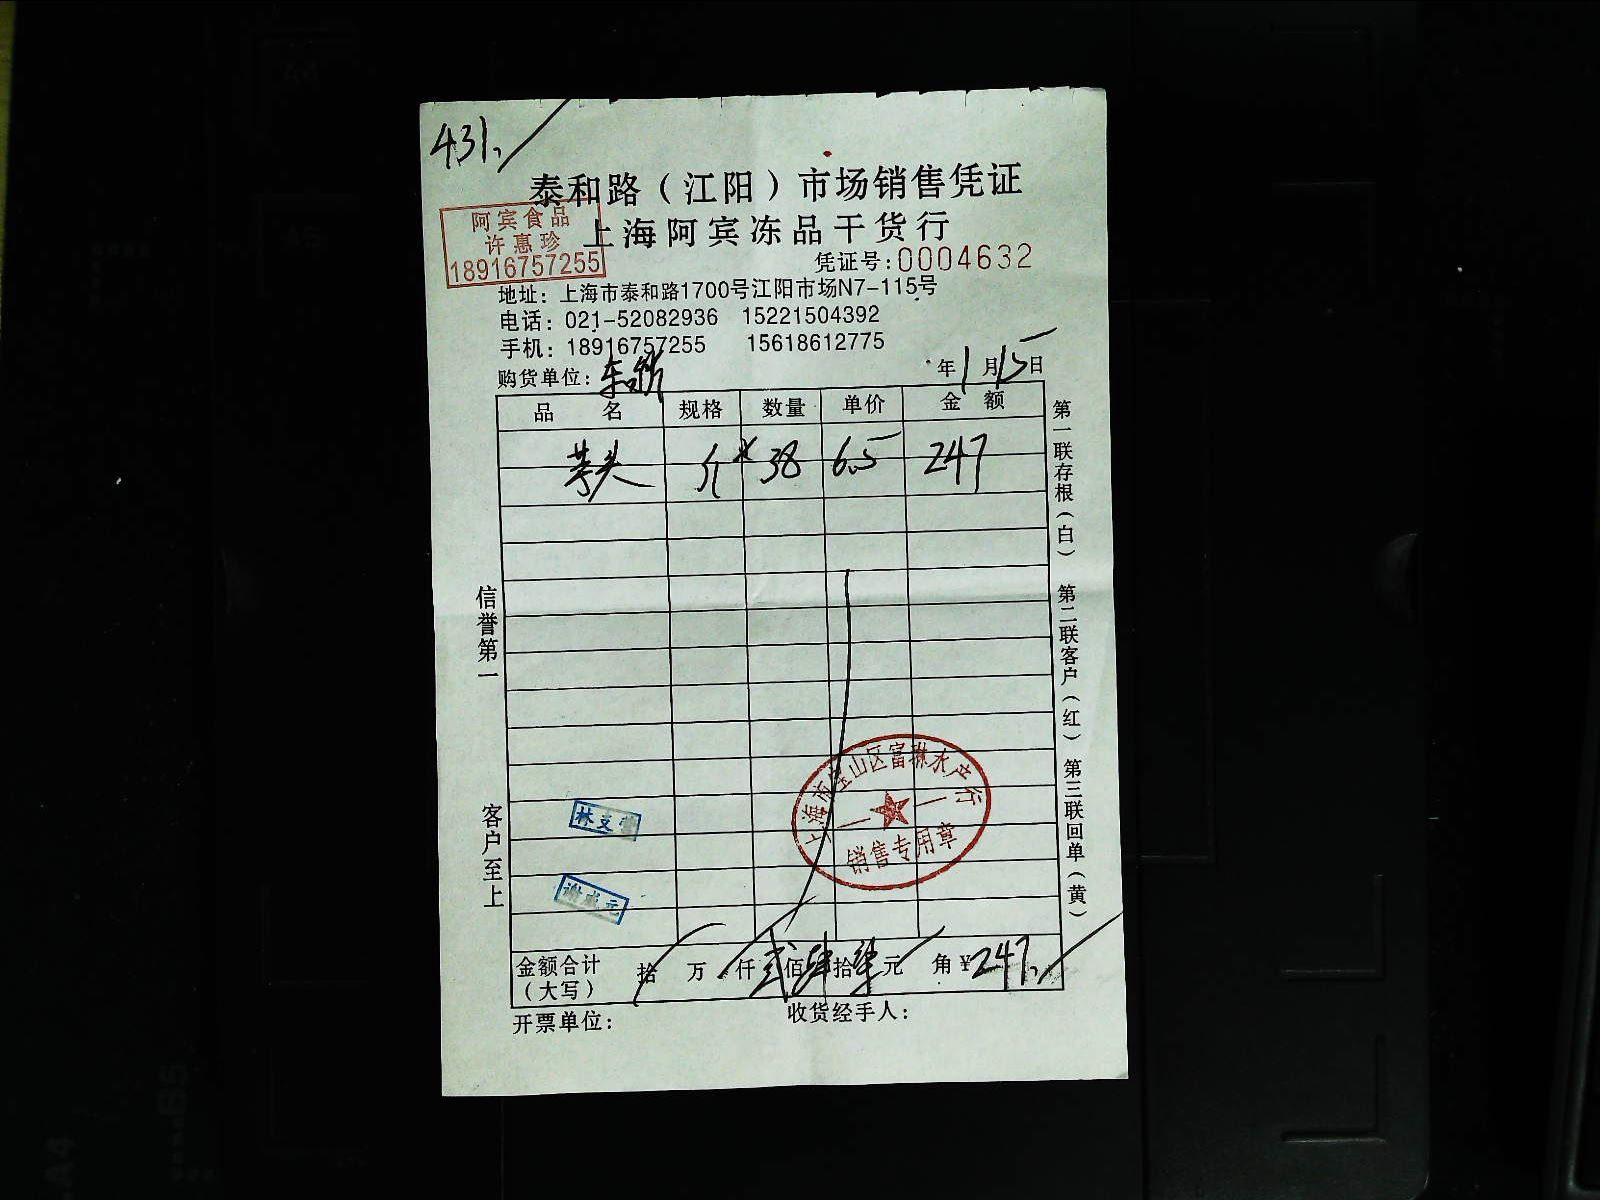 431.
泰和路（江阳）市场销售凭证
阿宾食品
许惠珍
18916757255
上海阿宾冻品干货行
凭证号:0004632
地址：上海市泰和路1700号江阳市场N7-115号
电话：021-52082936 15221504392
手机：18916757255 15618612775
购货单位： 年1月15日
品名 规格 数量 单价 金额
芋头 斤 38 6.5 247
信誉第一 客户至上
第一联存根（白） 第二联客户（红） 第三联回单（黄）
上海市宝山区富琳水产行
销售专用章
金额合计（大写） 拾 万 仟 贰佰肆拾柒元 角 ¥247.
开票单位： 收货经手人：